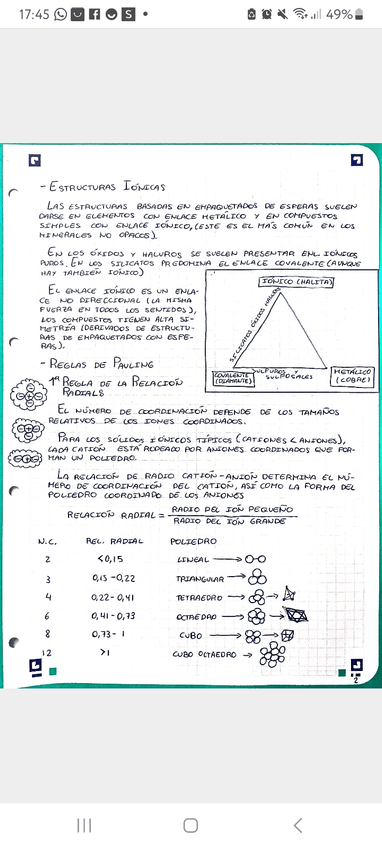 17:45
49%
- ESTRUCTURAS IÓNICAS
LAS ESTRUCTURAS BASADAS EN EMPAQUETADOS DE ESFERAS SUELEN
DARSE EN ELEMENTOS CON ENLACE METÁLICO Y EN COMPUESTOS
SIMPLES CON ENLACE IÓNICO, (ESTE ES EL MÁS COMÚN EN LOS
MINERALES NO OPACOS).
EN LOS ÓXIDOS Y HALUROS SE SUELEN PRESENTAR ENL. IÓNICOS
PUROS. EN LOS SILICATOS PREDOMINA EL ENLACE COVALENTE (AUNQUE
HAY TAMBIÉN IÓNICO)
EL ENLACE IÓNICO ES UN ENLA-
CE NO DIRECCIONAL (LA MISMA
FUERZA EN TODOS LOS SENTIDOS),
LOS COMPUESTOS TIENEN ALTA SI-
METRÍA (DERIVADOS DE ESTRUCTU-
RAS DE EMPAQUETADOS CON ESFE-
RAS).
IÓNICO (HALITA)
SILICATOS ÓXIDOS HALUROS
SULFUROS Y
SULFOSALES
COVALENTE
(DIAMANTE)
METÁLICO
(COBRE)
- REGLAS DE PAULING
1ª REGLA DE LA RELACIÓN
RADIALS
EL NÚMERO DE COORDINACIÓN DEPENDE DE LOS TAMAÑOS
RELATIVOS DE LOS IONES COORDINADOS.
PARA LOS SÓLIDOS IÓNICOS TÍPICOS (CATIONES & ANIONES),
CADA CATIÓN ESTÁ RODEADO POR ANIONES COORDINADOS QUE FOR-
MAN UN POLIEDRO.
LA RELACIÓN DE RADIO CATIÓN-ANIÓN DETERMINA EL NÚ-
MERO DE COORDINACIÓN DEL CATIÓN, ASÍ COMO LA FORMA DEL
POLIEDRO COORDINADO DE LOS ANIONES
RELACIÓN RADIAL = RADIO DEL IÓN PEQUEÑO
RADIO DEL IÓN GRANDE
N.C. REL. RADIAL POLIEDRO
2 <0,15 LINEAL
3 0,15-0,22 TRIANGULAR
4 0,22-0,41 TETRAEDRO
6 0,41-0,73 OCTAEDRO
8 0,73-1 CUBO
12 >1 CUBO OCTAEDRO
2